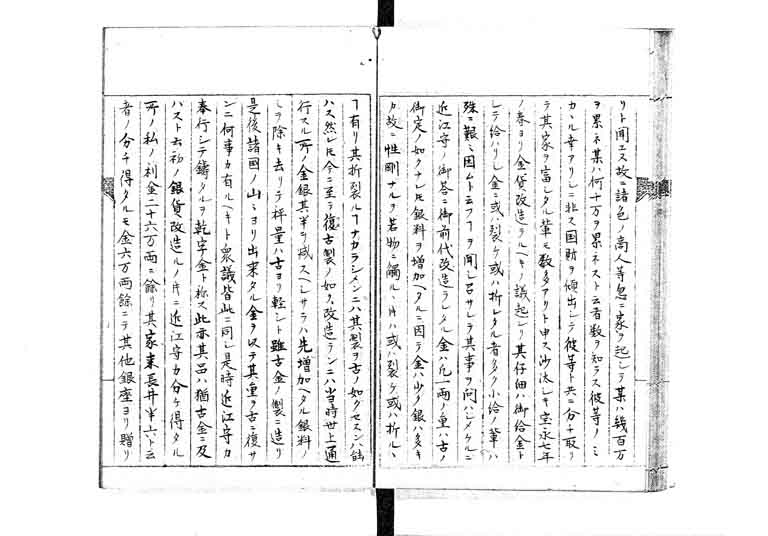 リト聞エス故ニ諸色ノ商人等忽ニ家ヲ起シテ某ハ幾百万
ヲ累ネ某ハ何十万ヲ累ネスト云者数ヲ知ラス彼等ノミ
カヽル幸アリシニ非ス国財ヲ傾出シテ彼等ト共ニ分チ取リ
テ其家ヲ富シタル輩モ数多アリト申ス沙汰シキ宝永七年
ノ春ヨリ金貨改造ラルヘキノ議起レリ其仔細ハ御給金ト
シテ給ハリシ金ニ或ハ裂ケ或ハ折レタル者多ク小給ノ輩ハ
殊ニ艱ミ困ムト云フヿヲ聞シ召サレテ其事ヲ問ハシメケルニ
近江守ノ御答ニ御前代改造ラレタル金ハ凡一両ノ重ハ古ノ
御定ノ如クナレ𪜈銀料ヲ増加ヘタルニ因テ金ハ少ク銀ハ多キ
カ故ニ性剛ナルヲ若物ニ觸ルヽ片ハ或ハ裂ケ或ハ折ルヽ
ヿ有リ其折裂ルヿナカラシメンニハ其製ヲ古ノ如クセスンハ能
ハス然レ𪜈今ニ至テ復古製ノ如ク改造ランニハ当時世上通
行スル所ノ金銀其半ヲ减スヘシサラハ先増加ヘタル銀料ノ
ミヲ除キ去リテ秤量ハ古ヨリ軽シト雖古金ノ製ニ造リ
是後諸國ノ山ミヨリ出来タル金ヲ以テ其重ヲ古ニ復サ
ンニ何事カ有ルヘキト衆議皆此ニ同シ是時近江守カ
奉行シテ鋳タルヲ乾字金ト称ス此亦其品ハ猶古金ニ及
ハスト云初ノ銀貨改造ルノ片ニ近江守カ分ケ得タル
所ノ私ノ利金二十六万両ニ餘リ其家来長井半六ト云
者ノ分チ得タルモ金六万両餘ニテ其他銀座ヨリ贈リ